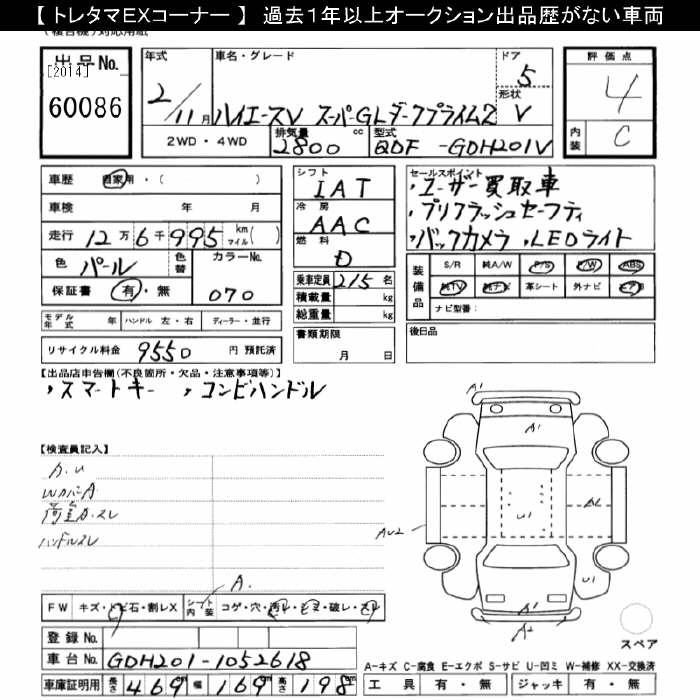 【 トレタマEXコーナー 】 過去1年以上オークション出品歴がない車両
出品No.
[2014]
60086
年式
2/11月
車名・グレード
ハイエースV スーパーGLダークプライム2
ドア
5
形状
V
2WD・4WD
排気量
2800 cc
型式
QDF -GDH201V
評価点
4
内装
C
車歴
自家用・( )
車検 年 月
走行 12万6千995 km マイル( )
色 パール
色替
カラーNo.
070
保証書 有・無
シフト
IAT
冷房
AAC
燃料
D
乗車定員 2/5 名
積載量 kg
総重量 kg
書類期限
月 日
セールスポイント
・ユーザー買取車
・プリクラッシュセーフティ
・バックカメラ ・LEDライト
装備品
S/R 純A/W P/S P/W ABS
純TV 純ナビ 革シート 外ナビ
ナビ型番:
後日品
モデル年式 年 ハンドル 左・右 ディーラー・並行
リサイクル料金 9550 円 預託済
【出品店申告欄(不良箇所・欠品・注意事項等)】
・スマートキー ・コンビハンドル
【検査員記入】
A.U
WカバーA
荷室A.スレ
ハンドルスレ
A.
FW キズ・トビ石・割レX
シート内装 コゲ・穴・汚レ・シミ・破レ・スレ
登録No.
車台No. GDH201-1052618
車庫証明用 長さ 469 cm 幅 169 cm 高さ 198 cm
A1
A1
U1
A2
AU2
U1
A1
A2
スペア
A-キズ C-腐食 E-エクボ S-サビ U-凹ミ W-補修 XX-交換済
工具 有・無 ジャッキ 有・無